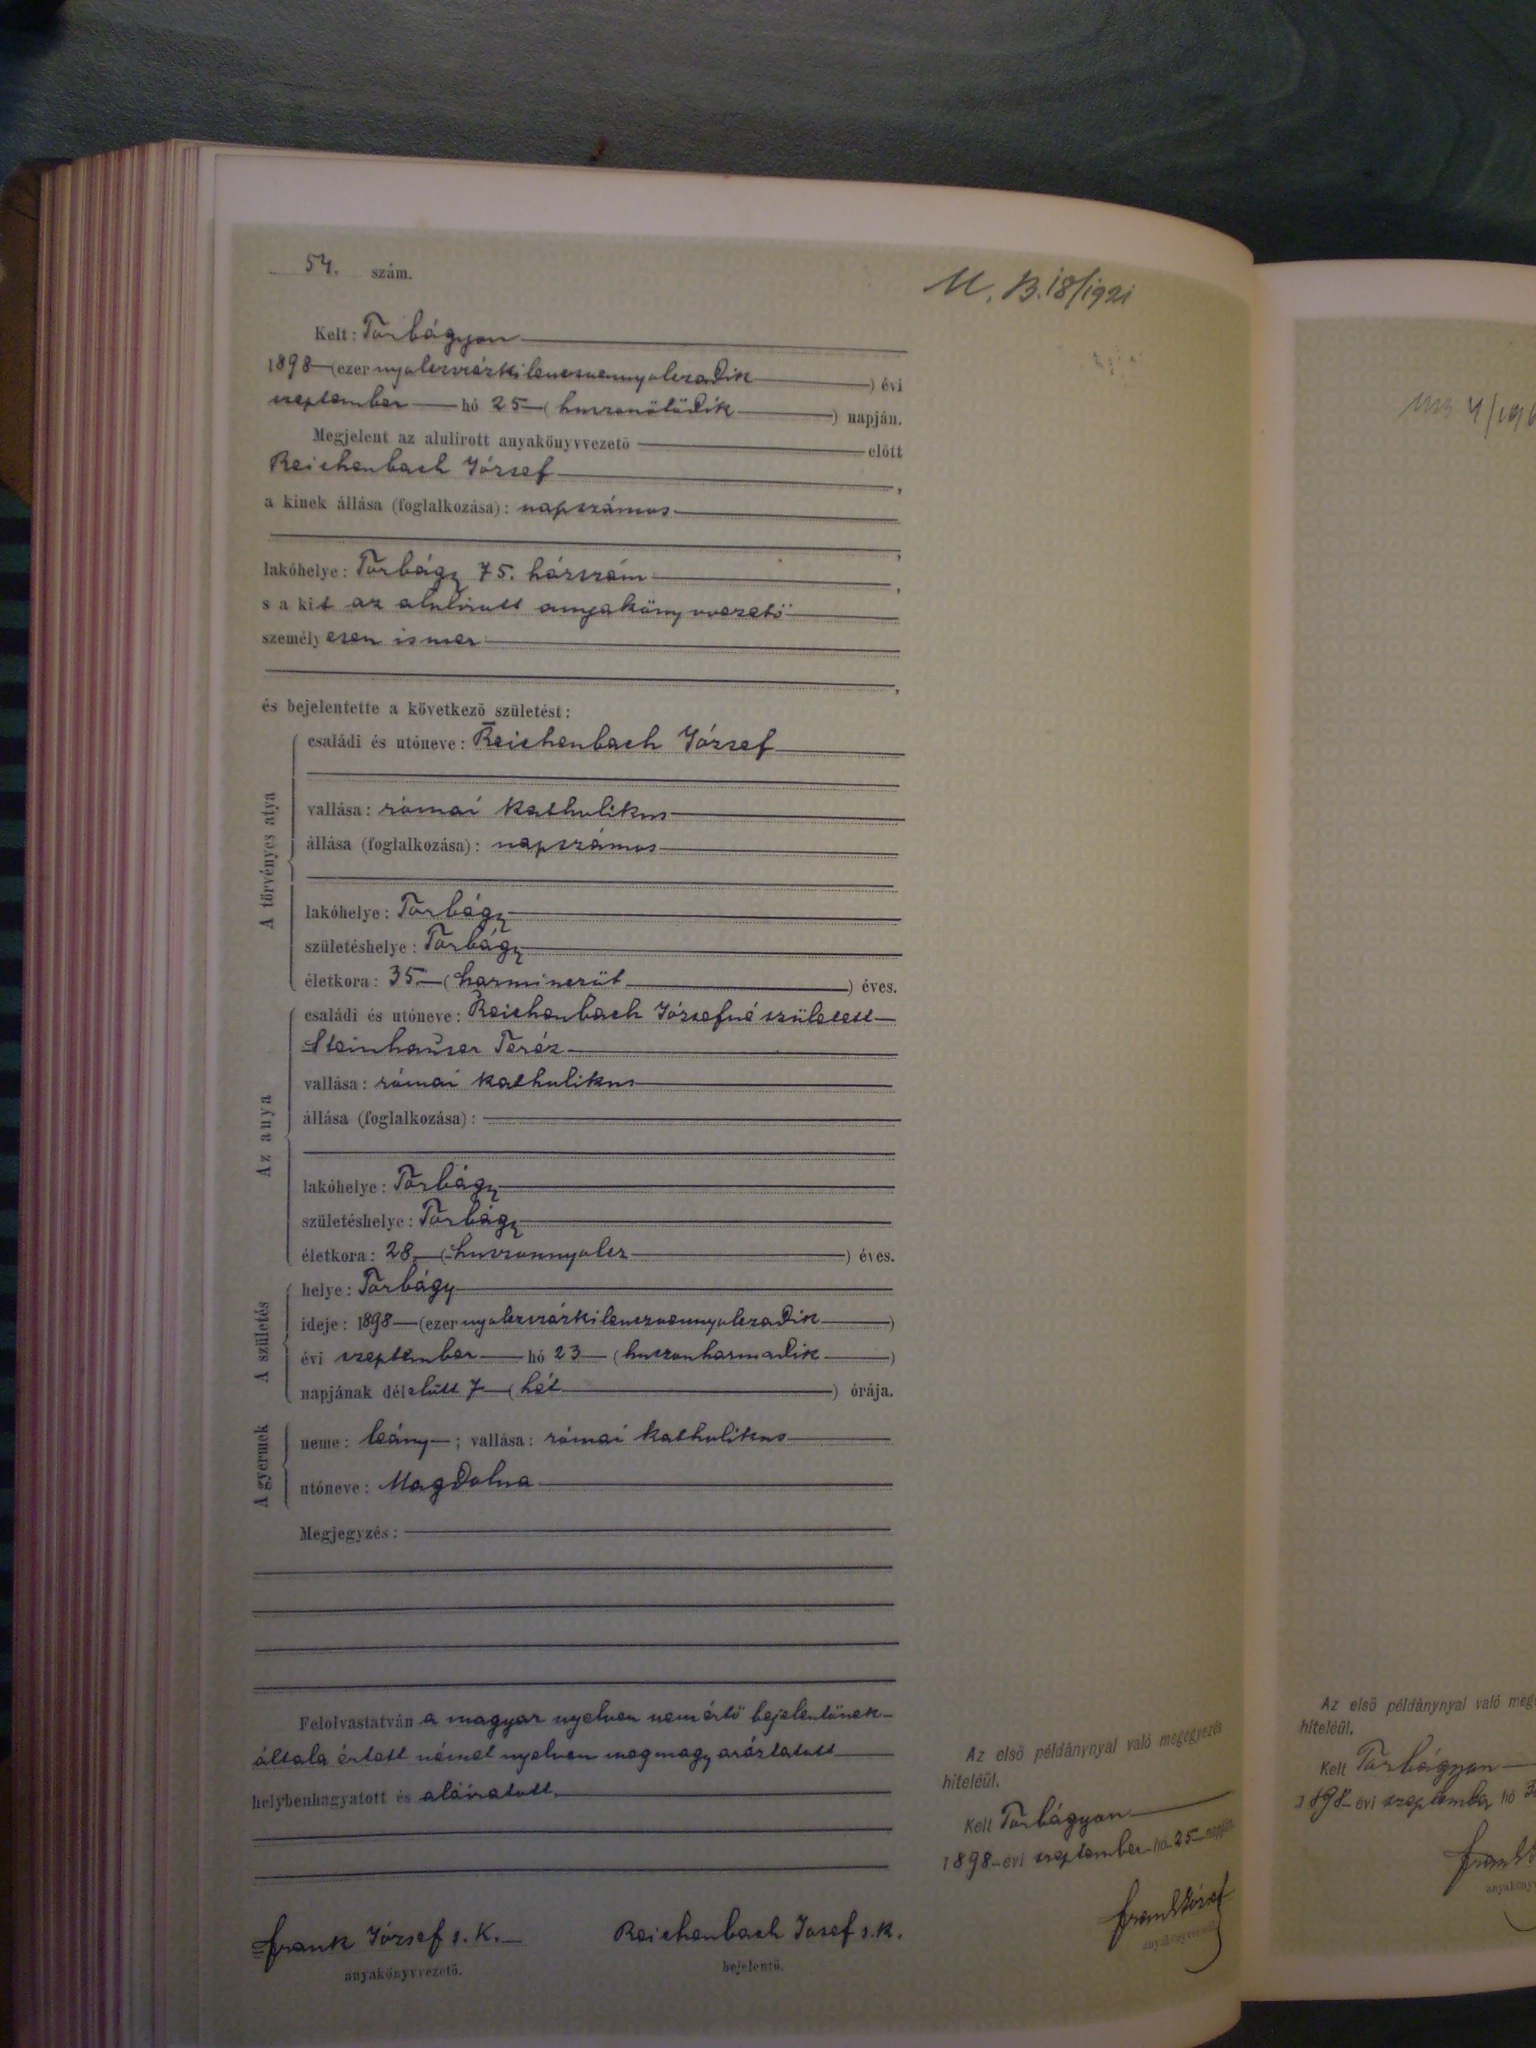 54. szám.
M. B. 18/1921
Kelt: Torbágyon
1898 (ezer nyolczszázkilenczvennyolczadik) évi
szeptember hó 25 (huszonötödik) napján.
Megjelent az alulirott anyakönyvvezető előtt
Reichenbach József,
a kinek állása (foglalkozása): napszámos
,
lakóhelye: Torbágy 75. házszám,
s a kit az alulirott anyakönyvvezető
személyesen ismer
,
és bejelentette a következő születést:
A törvényes atya
családi és utóneve: Reichenbach József
vallása: római katholikus
állása (foglalkozása): napszámos
lakóhelye: Torbágy
születéshelye: Torbágy
életkora: 35 (harminczöt) éves.
Az anya
családi és utóneve: Reichenbach Józsefné született
Steinhauser Teréz
vallása: római katholikus
állása (foglalkozása):
lakóhelye: Torbágy
születéshelye: Torbágy
életkora: 28 (huszonnyolcz) éves.
A születés
helye: Torbágy
ideje: 1898 (ezer nyolczszázkilenczvennyolczadik)
évi szeptember hó 23 (huszonharmadik)
napjának délelőtt 7 (hét) órája.
A gyermek
neme: leány; vallása: római katholikus
utóneve: Magdolna
Megjegyzés:
Felolvastatván a magyar nyelven nem értő bejelentőnek
általa értett német nyelven megmagyaráztatott
helybenhagyatott és aláiratott.
Frank József s. k.
anyakönyvvezető.
Reichenbach Josef s. k.
bejelentő.
Az első példánynyal való megegyezés
hiteléül.
Kelt Torbágyon
1898 évi szeptember hó 25 napján
Frank József
anyakönyvvezető
Az első példánynyal való
hiteléül.
Kelt Torbágyon
1898 évi szeptember hó